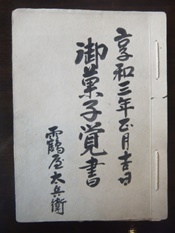 享和三年正月吉日
御菓子覚書
鶴屋太兵衛